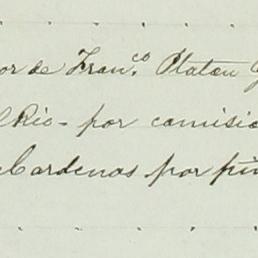 or de Fran.co Plateu
l Rio - por comisio
Cardenas por pin